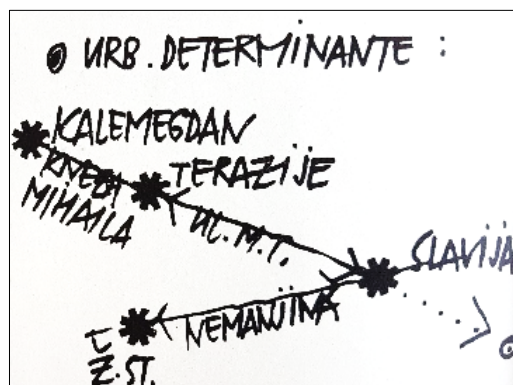 URB. DETERMINANTE :
KALEMEGDAN
KNEZA
MIHAILA
TERAZIJE
UL. M. T.
SLAVIJA
NEMANJINA
Ž. ST.